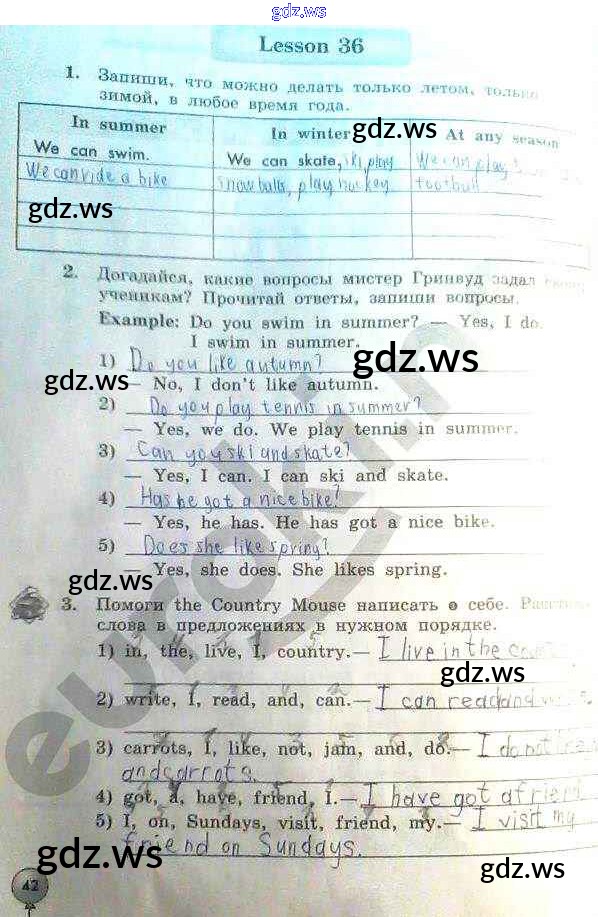 gdz.ws
Lesson 36
1. Запиши, что можно делать только летом, только
зимой, в любое время года.
In summer In winter At any season
gdz.ws
We can swim. We can skate, ski, play We can play
We can ride a bike snowballs, play hockey football
gdz.ws
2. Догадайся, какие вопросы мистер Гринвуд задал
ученикам? Прочитай ответы, запиши вопросы.
Example: Do you swim in summer? — Yes, I do.
I swim in summer.
1) Do you like autumn?
gdz.ws
gdz.ws
— No, I don't like autumn.
2) Do you play tennis in summer?
— Yes, we do. We play tennis in summer.
3) Can you ski and skate?
— Yes, I can. I can ski and skate.
4) Has he got a nice bike?
— Yes, he has. He has got a nice bike.
5) Does she like spring?
gdz.ws
gdz.ws
— Yes, she does. She likes spring.
3. Помоги the Country Mouse написать о себе.
слова в предложениях в нужном порядке.
1) in, the, live, I, country.— I live in the
gdz.ws
2) write, I, read, and, can.— I can read and
gdz.ws
3) carrots, I, like, not, jam, and, do.— I do not
and carrots.
4) got, a, have, friend, I.— I have got a friend
5) I, on, Sundays, visit, friend, my.— I visit my
friend on Sundays.
gdz.ws
gdz.ws
42
eurokin